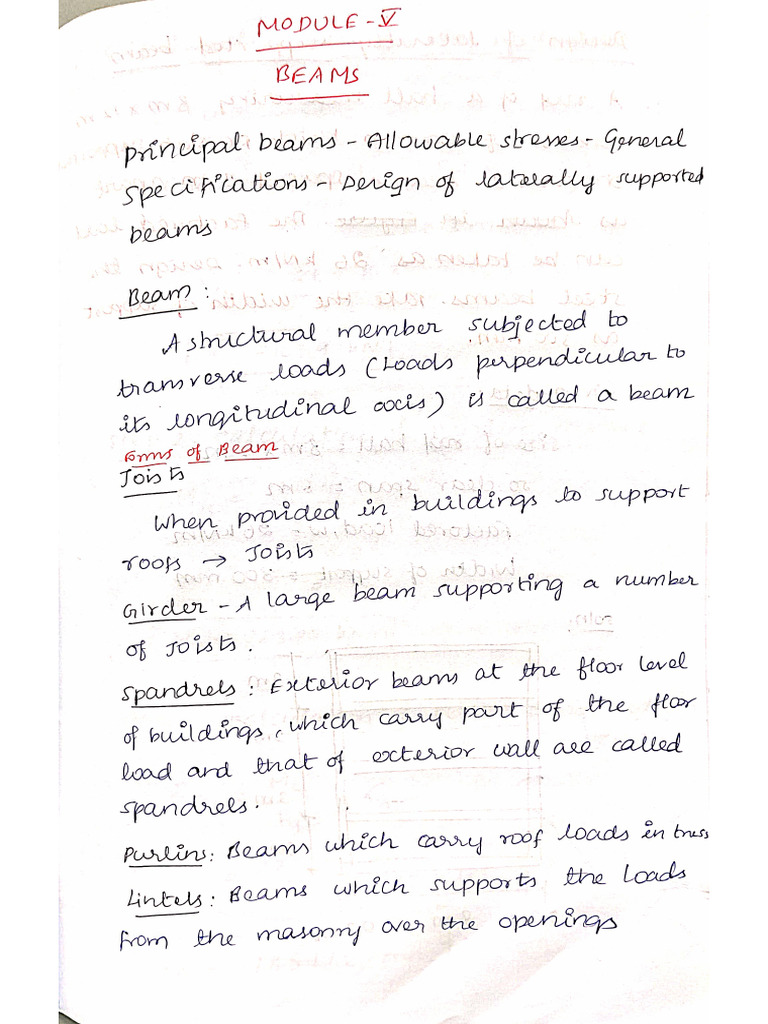 MODULE - V
BEAMS
Principal beams - Allowable stresses - General
specifications - Design of laterally supported
beams
Beam :
A structural member subjected to
transverse loads (Loads perpendicular to
its longitudinal axis) is called a beam
Forms of Beam
Joists
When provided in buildings to support
roofs → Joists
Girder - A large beam supporting a number
of Joists.
Spandrels : Exterior beams at the floor level
of buildings, which carry part of the floor
load and that of exterior wall are called
spandrels.
Purlins : Beams which carry roof loads in truss
Lintels : Beams which supports the loads
from the masonry over the openings